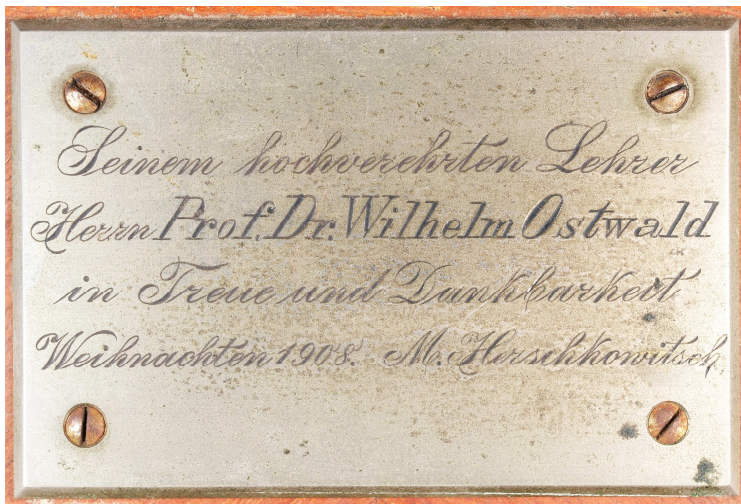 Seinem hochverehrten Lehrer
Herrn Prof. Dr. Wilhelm Ostwald
in Treue und Dankbarkeit
Weihnachten 1908. M. Herschkowitsch